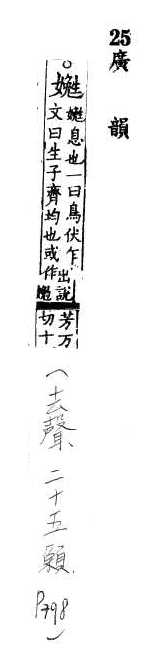 25廣韻
○嬎嬎息也一曰鳥伏乍出說
文曰生子齊均也或作
芳万
切十
(去聲、二十五願. P398)